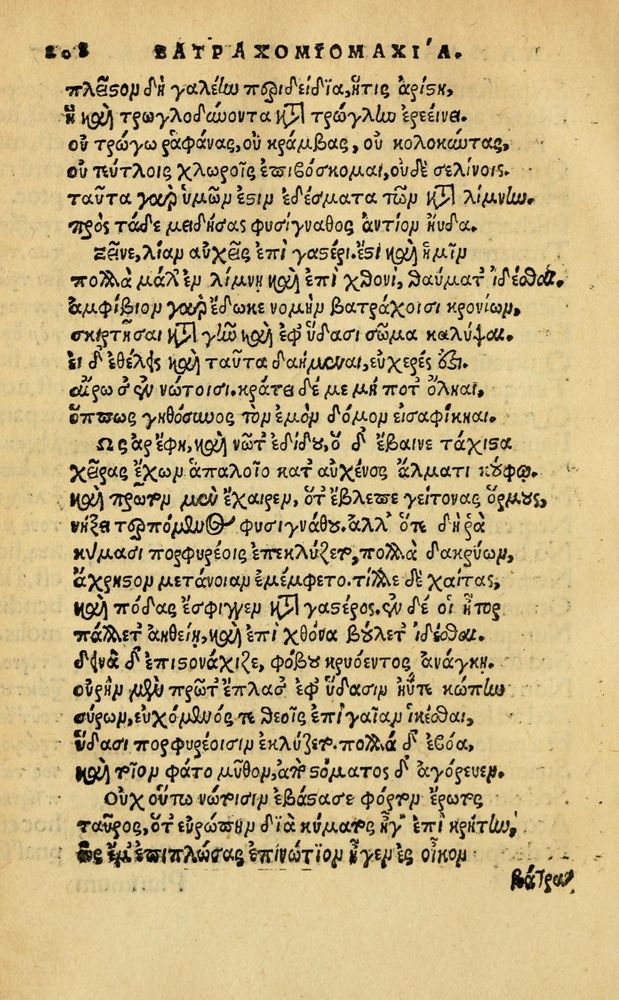 202 ΒΑΤΡΑΧΟΜΙΟΜΑΧΙ´Α.
πλεῖστον δὴ γαλέην περιδείδια, ἥτις ἀρίστη,
ἣ καὶ τρωγλοδύνοντα κατὰ τρώγλην ἐρεείνει.
οὐ τρώγω ῥαφάνας, οὐ κράμβας, οὐ κολοκύντας,
οὐ πεύτλοις χλωροῖς ἐπιβόσκομαι, οὐδὲ σελίνοις.
ταῦτα γὰρ ὑμῶν ἐστὶν ἐδέσματα τῶν κατὰ λίμνην.
πρὸς τάδε μειδήσας φυσίγναθος ἀντίον ηὔδα.
Ξεῖνε, λίαν αὐχεῖς ἐπὶ γαστέρι. ἔστι καὶ ἡμῖν
πολλὰ μάλ' ἐν λίμνῃ καὶ ἐπὶ χθονὶ, θαύματ' ἰδέσθαι.
ἀμφίβιον γὰρ ἔδωκε νομὴν βατράχοισι κρονίων,
σκιρτῆσαι κατὰ γῆν καὶ ἐφ' ὕδασι σῶμα καλύψαι.
εἰ δ' ἐθέλεις καὶ ταῦτα δαήμεναι, εὐχερές ἐστι.
αἴρω σ' ἐν νώτοισι. κράτει δέ με μή ποτ' ὄληαι,
ὅππως γηθόσυνος τὸν ἐμὸν δόμον εἰσαφίκηαι.
Ως ἄρ' ἔφη, καὶ νῶτ' ἐδίδου, ὁ δ' ἔβαινε τάχιστα
χεῖρας ἔχων ἁπαλοῖο κατ' αὐχένος ἅλματι κούφῳ.
καὶ πρῶτον μὲν ἔχαιρεν, ὅτ' ἔβλεπε γείτονας ὅρμους,
νήξει τερπόμενος φυσιγνάθου. ἀλλ' ὅτε δή ῥα
κύμασι πορφυρέοις ἐπεκλύζετο, πολλὰ δακρύων,
ἄχρηστον μετάνοιαν ἐμέμφετο. τίλλε δὲ χαίτας,
καὶ πόδας ἔσφιγγεν κατὰ γαστέρος. ἐν δέ οἱ ἦτορ
πάλλετ' ἀηθείῃ, καὶ ἐπὶ χθόνα βούλετ' ἰδέσθαι.
δεινὰ δ' ἐπιστονάχιζε, φόβου κρυόεντος ἀνάγκη.
οὐρὴν μὲν πρῶτ' ἔπλασ' ἐφ' ὕδασιν ἠΰτε κώπην
σύρων, εὐχόμενός τε θεοῖς ἐπὶ γαῖαν ἱκέσθαι,
ὕδασι πορφυρέοισιν ἐκλύζετο. πολλὰ δ' ἐβόα,
καὶ τοῖον φάτο μῦθον, ἀπὸ στόματος δ' ἀγόρευεν.
Οὐχ οὕτω νώτοισιν ἐβάστασε φόρτον ἔρωτος
ταῦρος, ὅτ' εὐρώπην διὰ κύματος ἦγ' ἐπὶ κρήτην,
ὡς ἔμ' ἐπιπλώσας ἐπινώτιον ἦγεν ἐς οἶκον
βάτρα